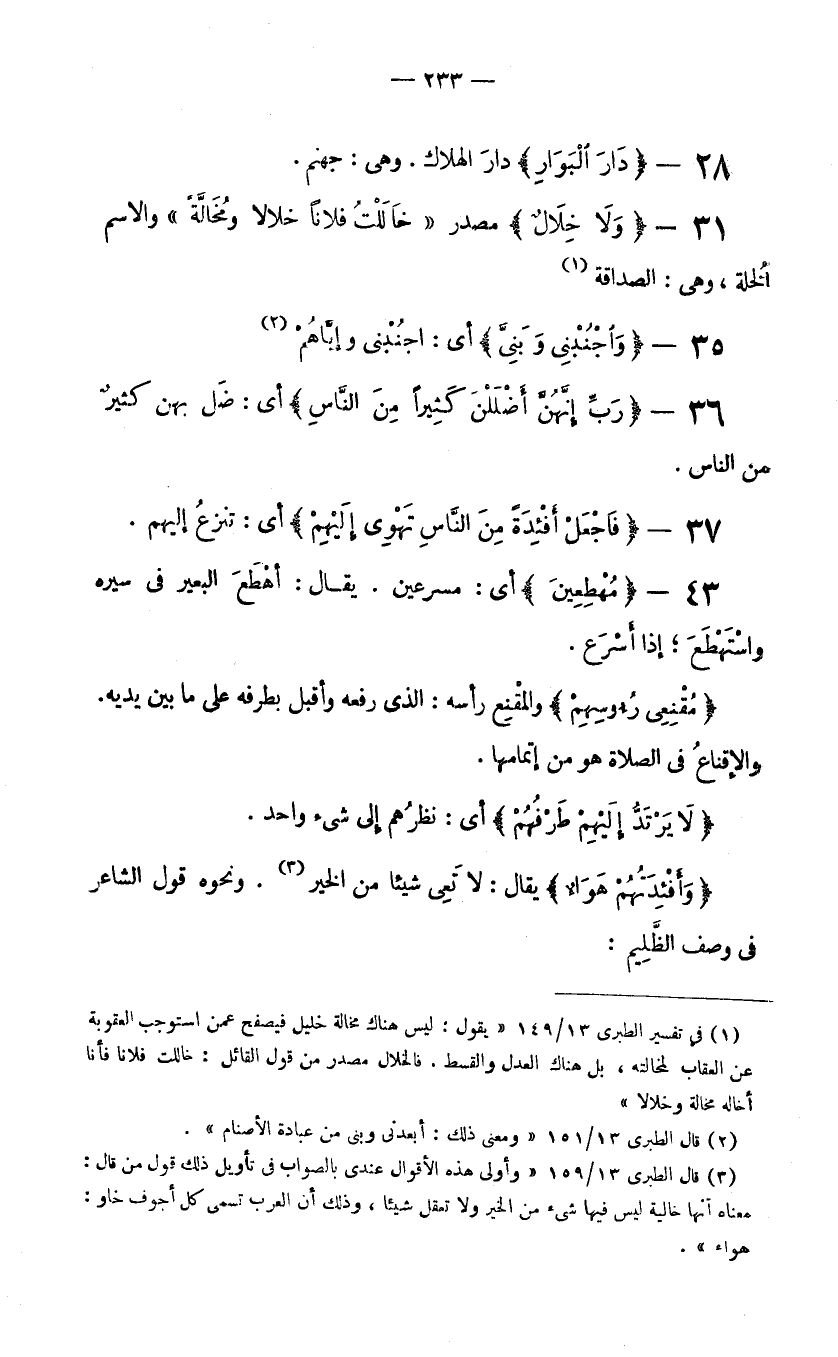 — ٢٣٣ —
٢٨ — ﴿ دَارَ ٱلْبَوَارِ ﴾ دارَ الهلاك . وهى : جهنم .
٣١ — ﴿ وَلَا خِلَالٌ ﴾ مصدر « خَالَلْتُ فلاناً خلالا ومُخَالَّةً » والاسم
اُلخلة ، وهى : الصداقة (١)
٣٥ — ﴿ وَٱجْنُبْنِى وَبَنِىَّ ﴾ أى : اجنُبْنى وإيَّاهُمْ (٢)
٣٦ — ﴿ رَبِّ إِنَّهُنَّ أَضْلَلْنَ كَثِيراً مِنَ النَّاسِ ﴾ أى : ضَل بهن كثيرٌ
من الناس .
٣٧ — ﴿ فَاجْعَلْ أَفْئِدَةً مِنَ النَّاسِ تَهْوِى إِلَيْهِمْ ﴾ أى : تنزعُ إليهم .
٤٣ — ﴿ مُهْطِعِينَ ﴾ أى : مسرعين . يقال : أهْطَعَ البعير فى سيره
واسْتَهْطَعَ ؛ إذا أَسْرَع .
﴿ مُقْنِعِى رُءوسِهِمْ ﴾ والمُقْنِع رأسه : الذى رفعه وأقبل بطرفه على ما بين يديه .
والإقناعُ فى الصلاة هو من إتمامها .
﴿ لَا يَرْتَدُّ إِلَيْهِمْ طَرْفُهُمْ ﴾ أى : نظرُهم إلى شىء واحد .
﴿ وَأَفْئِدَتُهُمْ هَوَاءٌ ﴾ يقال : لا تَعِى شيئا من الخير (٣) . ونحوه قول الشاعر
فى وصف الظَّلِيم :
(١) فى تفسير الطبرى ١٤٩/١٣ « يقول : ليس هناك مخالة خليل فيصفح عمن استوجب العقوبة
عن العقاب لمخالته ، بل هناك العدل والقسط . فالخلال مصدر من قول القائل : خاللت فلانا فأنا
أخاله مخالة وخلالا »
(٢) قال الطبرى ١٥١/١٣ « ومعنى ذلك : أبعدنى وبنى من عبادة الأصنام » .
(٣) قال الطبرى ١٥٩/١٣ « وأولى هذه الأقوال عندى بالصواب فى تأويل ذلك قول من قال :
معناه أنها خالية ليس فيها شىء من الخير ولا تعقل شيئا ، وذلك أن العرب تسمى كل أجوف خاو :
هواء » .